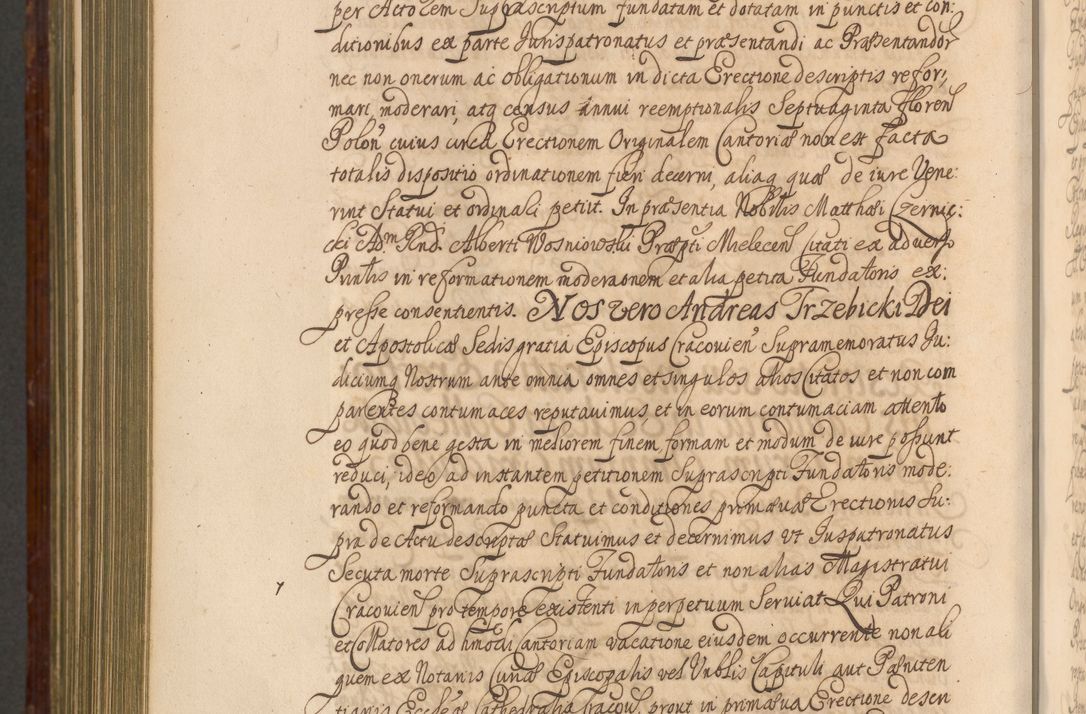 per Acto cem Suprascriptum fundatam et dotatam in punctis et con:
ditionibus ex parte Jurispatronatus et præsentandi ac Præsentandor
nec non onerum ac obligationum in dicta Erectione descriptis refor,
mari, moderari, atq census annui reemptionalis Septuaginta floren
Polon cuius circa Erectionem Originalem Cantoriæ non est facta
totalis dispositio ordinationem fieri decerni, aliaq quæ de iure Vene:
rint Statui et ordinali petiit. In præsentia Nobilis Matthæi Czernic:
cki Adm Rnd. Alberti Wosniowski Præpti Mielecen Citati ex adverso
Pnntis in reformationem moderaonem et alia petita Fundatoris ex:
presse consentientis. Nos vero Andreas Trzebicki Dei
et Apostolicæ Sedis gratia Episcopus Cracovien Supramemoratus Ju:
diciumq Nostrum ante omnia omnes et singulos alios Citatos et non com
parentes contumaces reputavimus, et in eorum contumaciam attento
eo quod bene gesta in meliorem finem formam et modum de iure possunt
reduci, ideo ad instantem petitionem Suprascripti Fundatoris mode:
rando et reformando puncta et conditiones primævæ Erectionis Su:
pra de Actu descriptæ Statuimus et decernimus ut Juspatronatus
Secuta morte Suprascripti Fundatoris et non alias Magistratui
7 Cracovien pro tempore existenti in perpetuum Serviat Qui Patroni
et Collatores ad hmodi Cantoriam vacatione eiusdem occurrente non ali
quem ex Notariis Curiæ Episcopalis vel Vnblis Capituli aut Pæniten
tiariis Ecclesiæ Cathedralis Cracov, prout in primæva Erectione descri